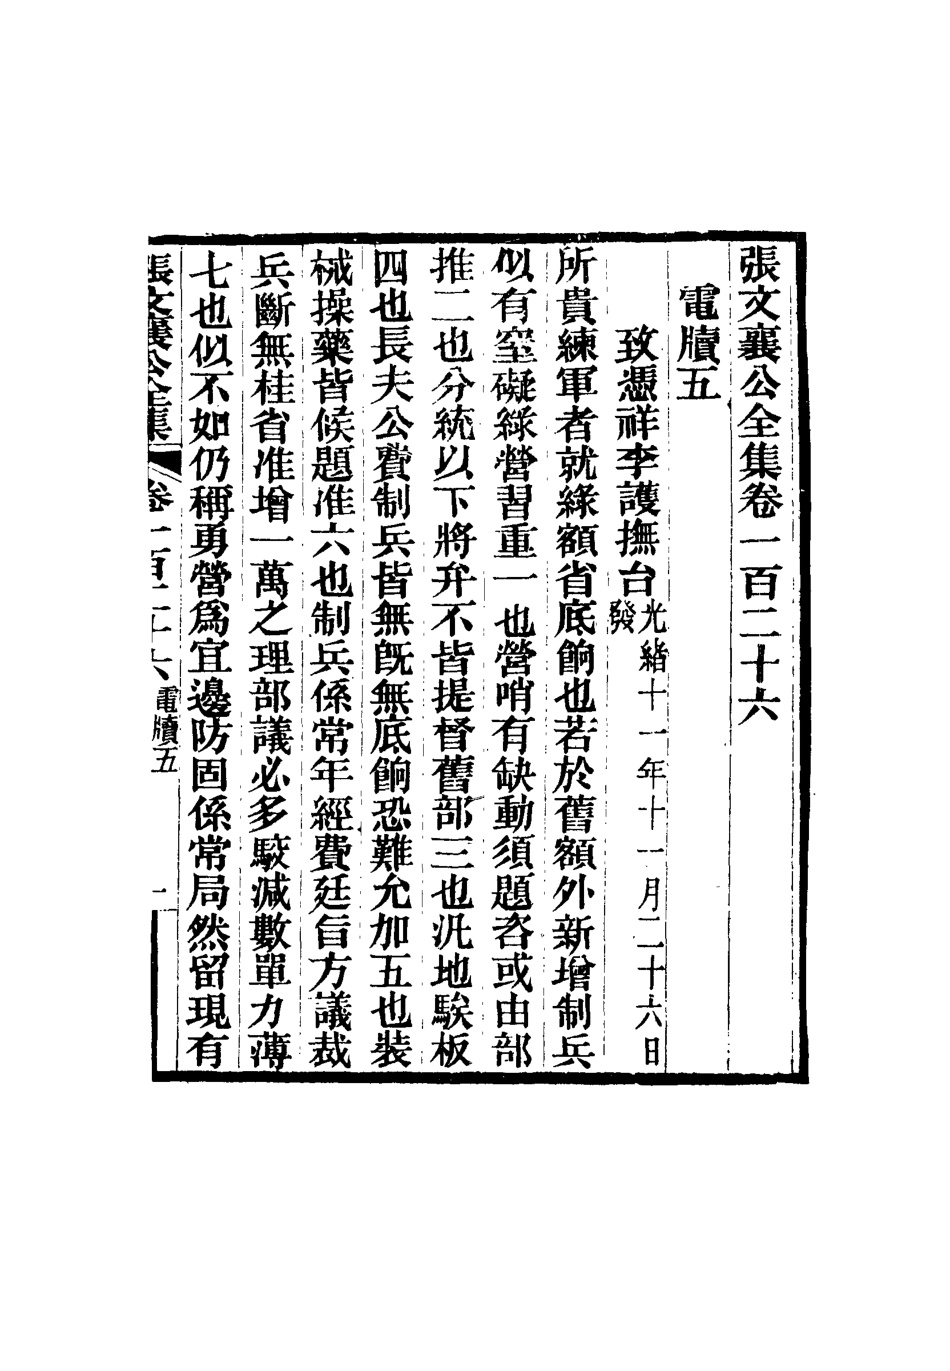 張文襄公全集卷一百二十六
電牘五
致憑祥李護撫台光緒十一年十一月二十六日發
所貴練軍者就綠額省底餉也若於舊額外新增制兵
似有窒礙綠營習重一也營哨有缺動須題咨或由部
推二也分統以下將弁不皆提督舊部三也汛地騃板
四也長夫公費制兵皆無旣無底餉恐難允加五也裝
械操藥皆候題准六也制兵係常年經費廷旨方議裁
兵斷無桂省准增一萬之理部議必多駮減數單力薄
七也似不如仍稱勇營爲宜邊防固係常局然留現有
張文襄公全集 卷一百二十六 電牘五 一